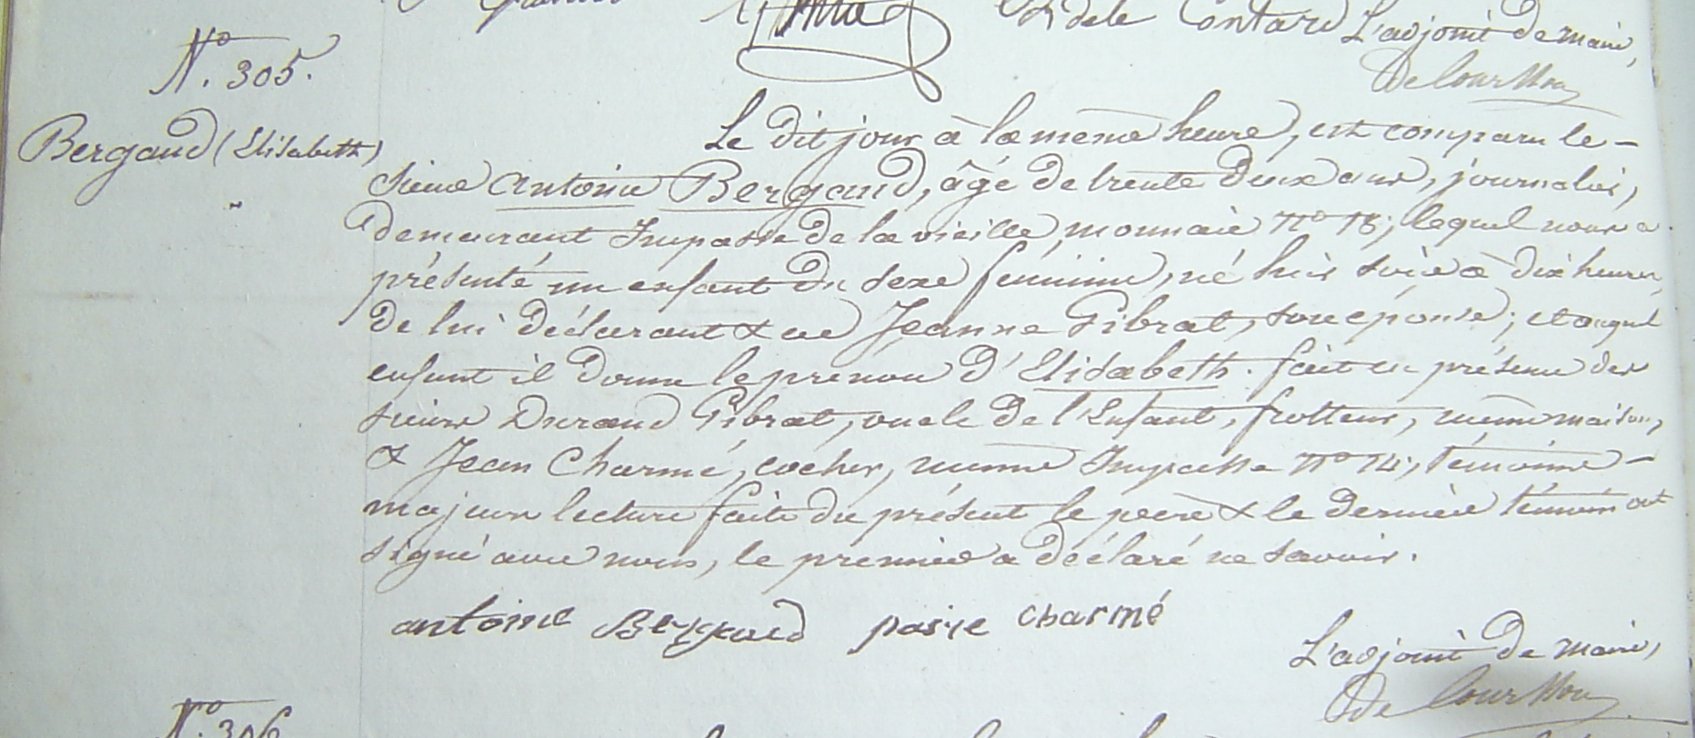 Adele Contard L'adjoint de maire,
de Courtton
N.° 305.
Bergaud (Elisabeth)
Le dit jour à la même heure, est comparu le-
sieur Antoine Bergaud, âgé de trente deux ans, journalier,
demeurant Impasse de la vieille monnaie n° 18; lequel nous a
présenté un enfant du sexe féminin, né hier soir à dix heures,
de lui déclarant & de Jeanne Gibrat, son épouse; et auquel
enfant il donne le prenom d'Elisabeth. fait en présence des
sieurs Durand Gibrat, oncle de l'Enfant, frotteur, même maison,
& Jean Charmé, cocher, même Impasse n° 14, témoins-
majeurs lecture faite du présent le père & le dernier témoin ont
signé avec nous, le premier a déclaré ne savoir.
antoine Bergaud charmé
L'adjoint de maire,
de Courtton
N.° 306